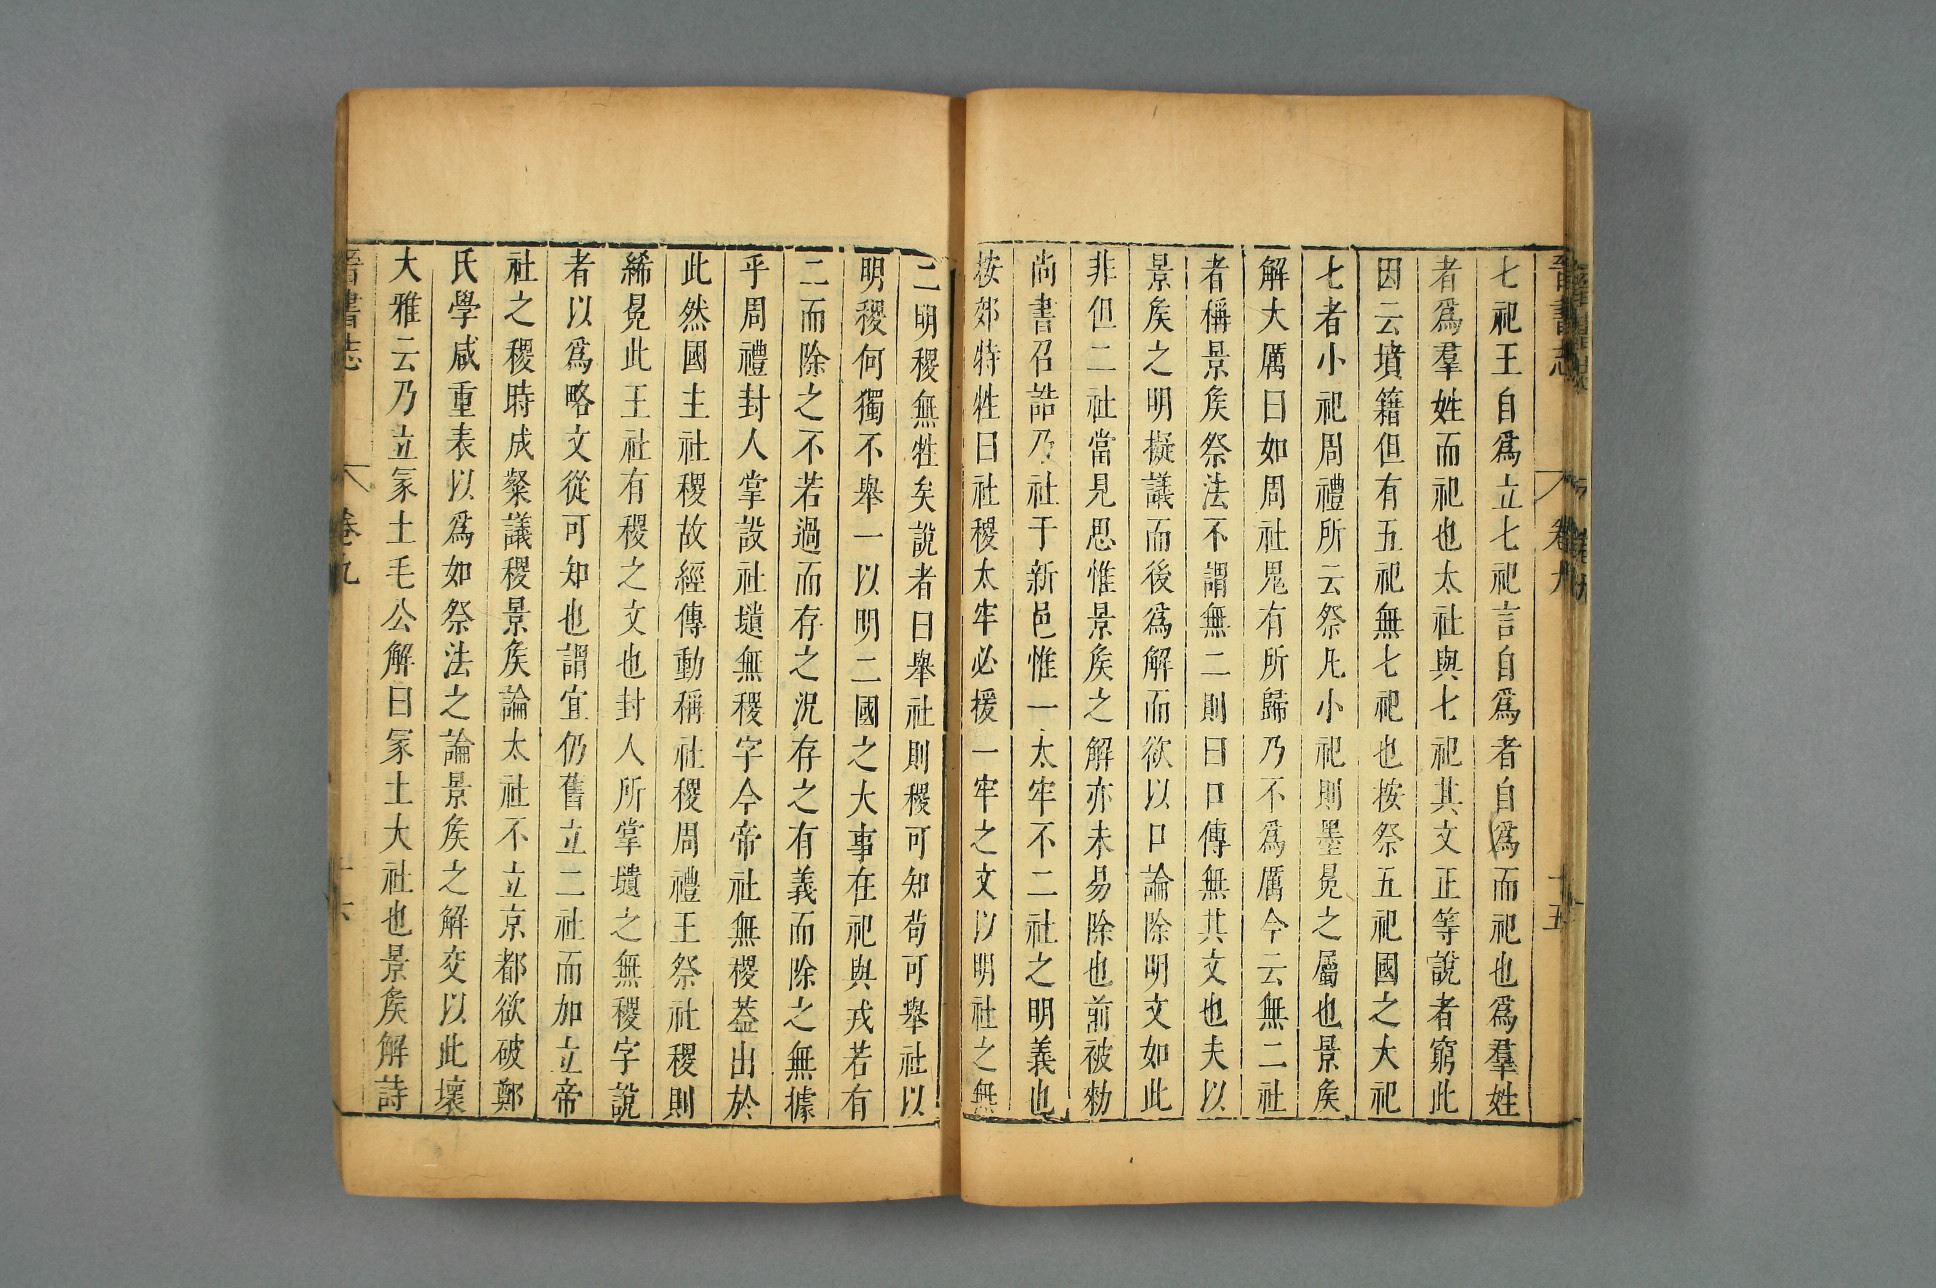 晉書志 卷九 十五
七祀王自爲立七祀言自爲者自爲而祀也爲羣姓
者爲羣姓而祀也太社與七祀其文正等說者窮此
因云墳籍但有五祀無七祀也按祭五祀國之大祀
七者小祀周禮所云祭凡小祀則墨冕之屬也景矦
解大厲曰如周社鬼有所歸乃不爲厲今云無二社
者稱景矦祭法不謂無二則曰口傳無其文也夫以
景矦之明擬議而後爲解而欲以口論除明文如此
非但二社當見思惟景矦之解亦未易除也前被勑
尚書召誥乃社于新邑惟一太牢不二社之明義也
按郊特牲曰社稷太牢必援一牢之文以明社之無
二明稷無牲矣說者曰舉社則稷可知苟可舉社以
明稷何獨不舉一以明二國之大事在祀與戎若有
二而除之不若過而存之況存之有義而除之無據
乎周禮封人掌設社壝無稷字今帝社無稷葢出於
此然國主社稷故經傳動稱社稷周禮王祭社稷則
絺冕此王社有稷之文也封人所掌壝之無稷字說
者以爲略文從可知也謂宜仍舊立二社而加立帝
社之稷時成粲議稷景矦論太社不立京都欲破鄭
氏學咸重表以爲如祭法之論景矦之解交以此壞
大雅云乃立冡土毛公解曰冡土大社也景矦解詩
晉書志 卷九 十六